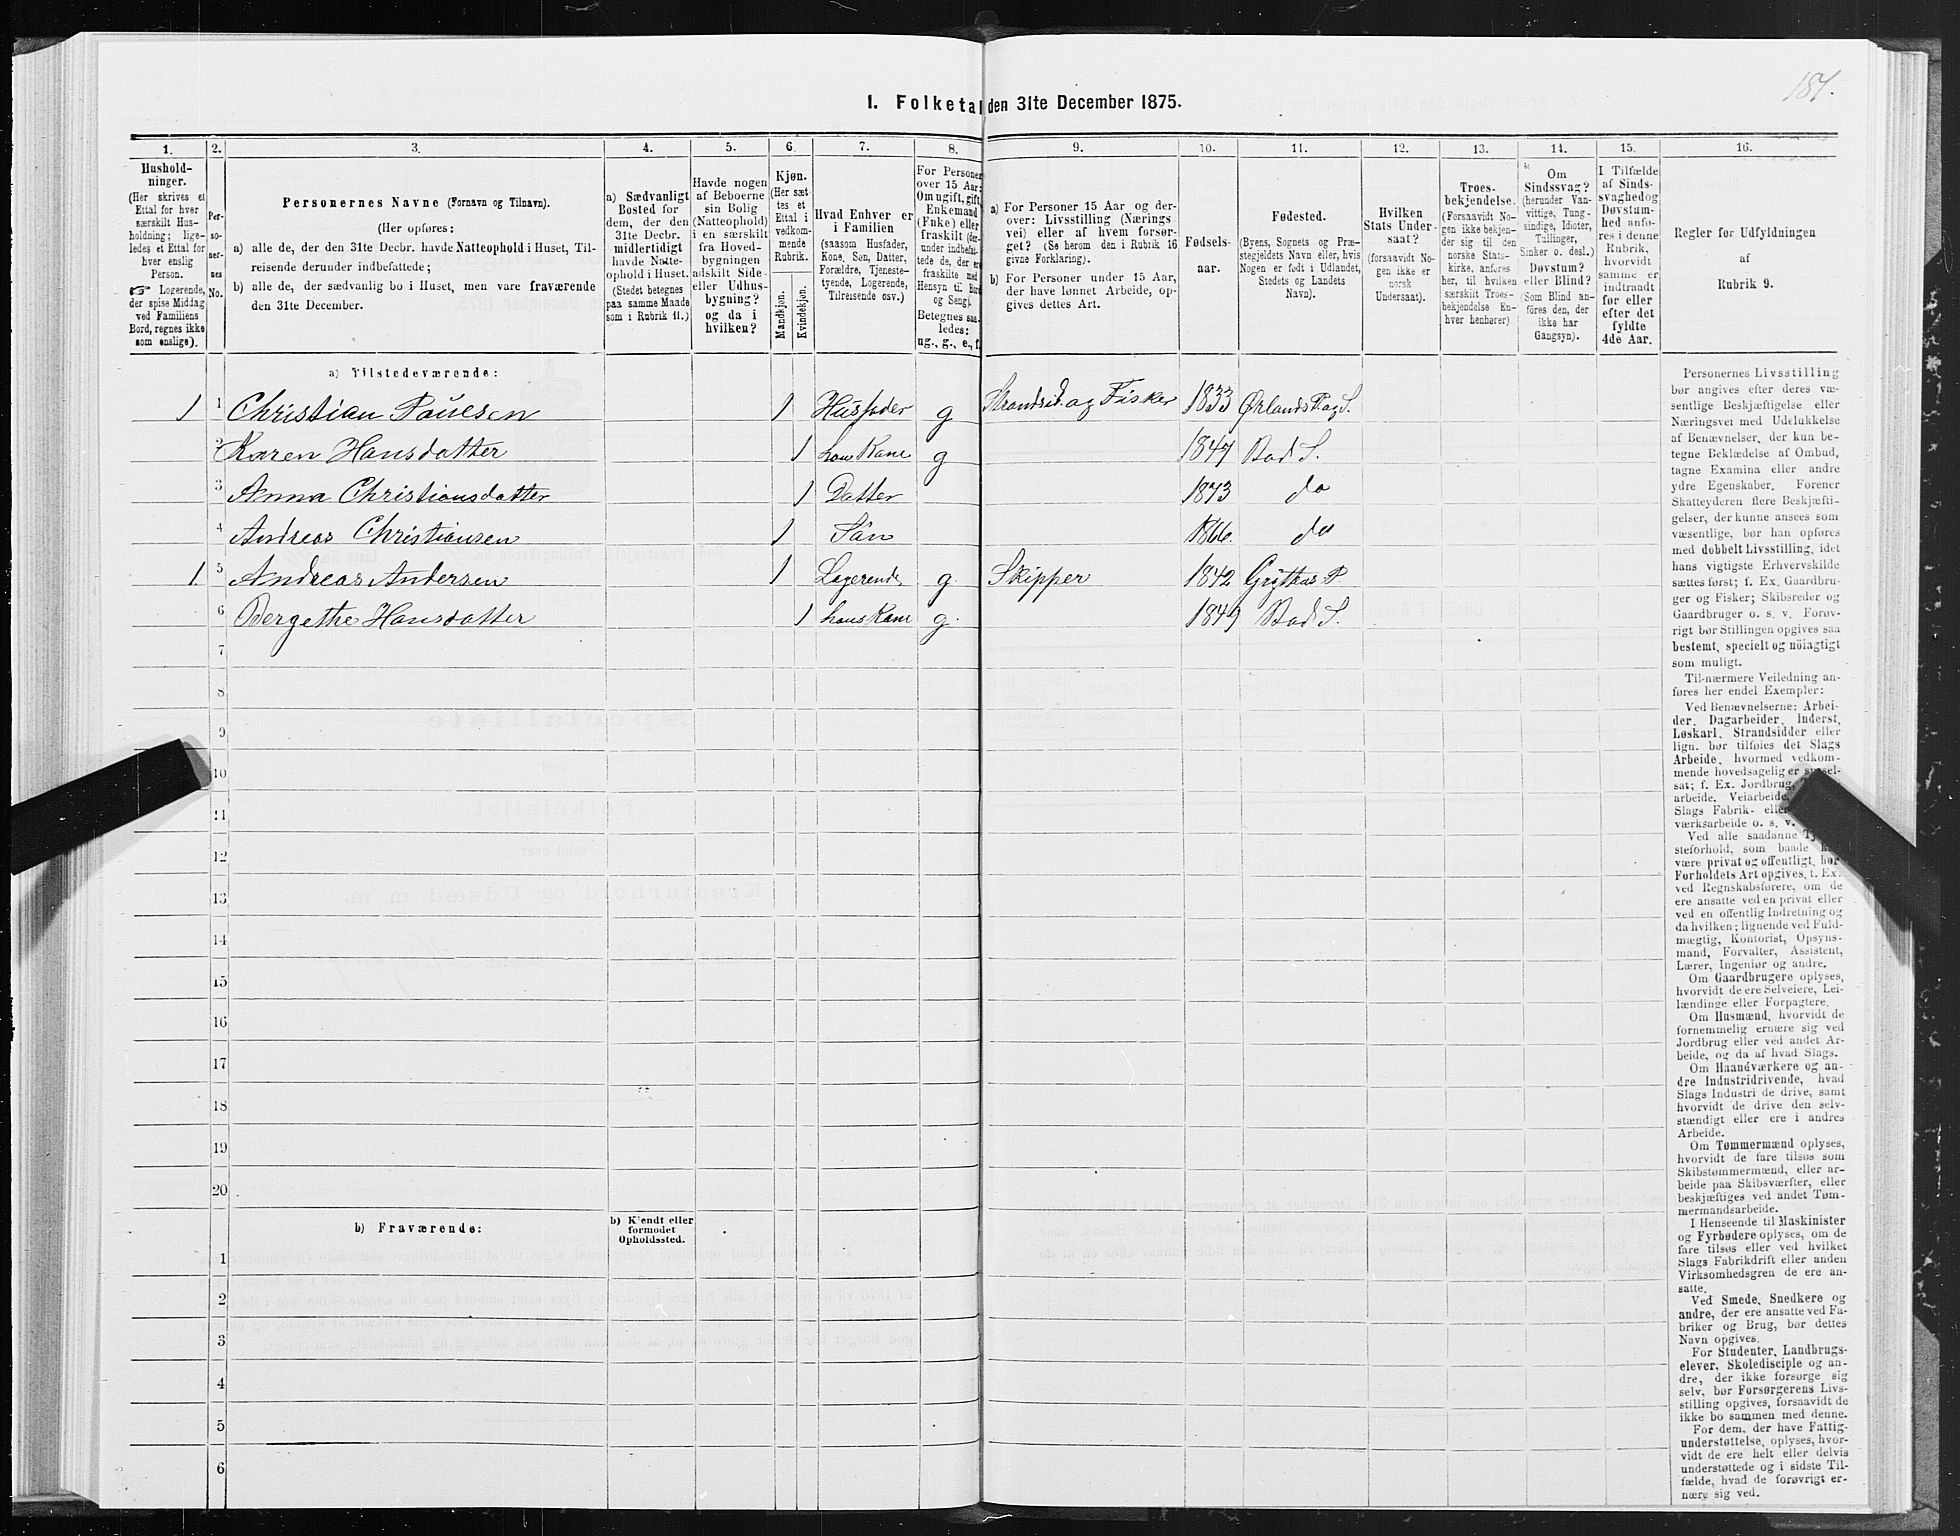 181.
I. Folketal den 31te December 1875.
1. 2. 3. 4. 5. 6. 7. 8. 9. 10. 11. 12. 13. 14. 15. 16.
Hushold-
ninger.
(Her skrives et
Ettal for hver
særskilt Hus-
holdning; lige-
ledes et Ettal for
hver enslig
Person.
☞ Logerende,
der spise Middag
ved Familiens
Bord, regnes ikke
som enslige).
Per-
so-
ner-
nes
No.
Personernes Navne (Fornavn og Tilnavn).
(Her opføres:
a) alle de, der den 31te Decbr. havde Natteophold i Huset, Til-
reisende derunder indbefattede;
b) alle de, der sædvanlig bo i Huset, men vare fraværende
den 31te December.
a) Sædvanligt
Bosted for
dem, der den
31te Decbr.
midlertidigt
havde Natte-
ophold i Huset.
(Stedet betegnes
paa samme Maade
som i Rubrik 11.)
Havde nogen
af Beboerne
sin Bolig
(Natteophold)
i en særskilt
fra Hoved-
bygningen
adskilt Side-
eller Udhus-
bygning?
og da i
hvilken?
Kjøn.
(Her sæt-
tes et
Ettal i
vedkom-
mende
Rubrik.
Mandkjøn.
Kvindekjøn.
Hvad Enhver er
i Familien
(saasom Husfader,
Kone, Søn, Datter,
Forældre, Tjeneste-
tyende, Logerende,
Tilreisende osv.)
For Personer
over 15 Aar:
Om ugift, gift,
Enkemand
(Enke) eller
fraskilt (der-
under indbefat-
tede de, der er
fraskilte med
Hensyn til Bord
og Seng).
Betegnes saa-
ledes:
ug., g., e., f.
a) For Personer 15 Aar og der-
over: Livsstilling (Nærings-
vei) eller af hvem forsør-
get? (Se herom den i Rubrik 16
givne Forklaring).
b) For Personer under 15 Aar,
der have lønnet Arbeide, op-
gives dettes Art.
Fødsels-
aar.
Fødested.
(Byens, Sognets og Præ-
stegjeldets Navn eller, hvis
Nogen er født i Udlandet,
Stedets og Landets
Navn).
Hvilken
Stats Under-
saat?
(forsaavidt No-
gen ikke er
norsk
Undersaat).
Troes-
bekjendelse.
(Forsaavidt No-
gen ikke bekjen-
der sig til den
norske Stats-
kirke, anføres
her, til hvilken
særskilt Troes-
bekjendelse En-
hver henhører)
Om
Sindssvag?
(herunder Van-
vittige, Tung-
sindige, Idioter,
Tullinger,
Sinker o. desl.)
Døvstum?
eller Blind?
(Som Blind an-
föres den, der
ikke har
Gangsyn).
I Tilfælde
af Sinds-
svaghed og
Døvstum-
hed anfø-
res i denne
Rubrik,
hvorvidt
samme er
indtraadt
før eller
efter det
fyldte
4de Aar.
Regler for Udfyldningen
af
Rubrik 9.
a) Tilstedeværende:
1 1 Christian Paulsen 1 Husfader g Strandsid. og Fisker 1833 Ørlands P. og S.
2 Karen Hansdatter 1 hans Kone g 1847 Bod S.
3 Anna Christiansdatter 1 Datter 1873 do
4 Andreas Christiansen 1 Søn 1866. do
1. 5 Andreas Andersen 1 Logerende g. Skipper 1842 Grÿtkas P
6 Bergethe Hansdatter 1 hans Kone g. 1849 Bod S.
7
8
9
10
11
12
13
14
15
16
17
18
19
20
b) Fraværende:
b) Kjendt eller
formodet
Opholdssted.
1
2
3
4
5
6
Personernes Livsstilling
bør angives efter deres væ-
sentlige Beskjæftigelse eller
Næringsvei med Udelukkelse
af Benævnelser, der kun be-
tegne Beklædelse af Ombud,
tagne Examina eller andre
ydre Egenskaber. Forener
Skatteyderen flere Beskjæfti-
gelser, der kunne ansees som
væsentlige, bør han opføres
med dobbelt Livsstilling, idet
hans vigtigste Erhvervskilde
sættes først; f. Ex. Gaardbru-
ger og Fisker; Skibsreder og
Gaardbruger o. s. v. Forøv-
rigt bør Stillingen opgives saa
bestemt, specielt og nöiagtigt
som muligt.
Til nærmere Veiledning an-
føres her endel Exempler:
Ved Benævnelserne: Arbei-
der, Dagarbeider, Inderst,
Løskarl, Strandsidder eller
lign. bør tilføies det Slags
Arbeide, hvormed vedkom-
mende hovedsagelig er syssel-
sat; f. Ex. Jordbrug,
arbeide, Veiarbeide,
Slags Fabrik- eller
værksarbeide o. s. v.
Ved alle saadanne Tje-
steforhold, som baade
være privat og offentligt, bør
Forholdets Art opgives, f. Ex.
ved Regnskabsførere, om de
ere ansatte ved en privat eller
ved en offentlig Indretning og
da hvilken; lignende ved Fuld-
mægtig, Kontorist, Opsyns-
mand, Forvalter, Assistent,
Lærer, Ingeniør og andre.
Om Gaardbrugere oplyses,
hvorvidt de ere Selveiere, Lei-
lændinge eller Forpagtere.
Om Husmænd, hvorvidt de
fornemmelig ernære sig ved
Jordbrug eller ved andet Ar-
beide, og da af hvad Slags.
Om Haandværkere og an-
dre Industridrivende, hvad
Slags Industri de drive, samt
hvorvidt de drive den selv-
stændigt eller ere i andres
Arbeide.
Om Tømmermænd oplyses,
hvorvidt de fare tilsøs som
Skibstømmermænd, eller ar-
beide paa Skibsværfter, eller
beskjæftiges ved andet Tøm-
mermandsarbeide.
I Henseende til Maskinister
og Fyrbødere oplyses, om de
fare tilsøs eller ved hvilket
Slags Fabrikdrift eller anden
Virksomhedsgren de ere an-
satte.
Ved Smede, Snedkere og
andre, der ere ansatte ved Fa-
briker og Brug, bør dettes
Navn opgives.
For Studenter, Landbrugs-
elever, Skoledisciple og an-
dre, der ikke forsørge sig
selv, bør Forsørgerens Livs-
stilling opgives, forsaavidt de
ikke bo sammen med denne.
For dem, der have Fattig-
understøttelse, oplyses, hvor-
vidt de ere helt eller delvis
understøttede og i sidste Til-
fælde, hvad de forøvrigt er-
nære sig ved.